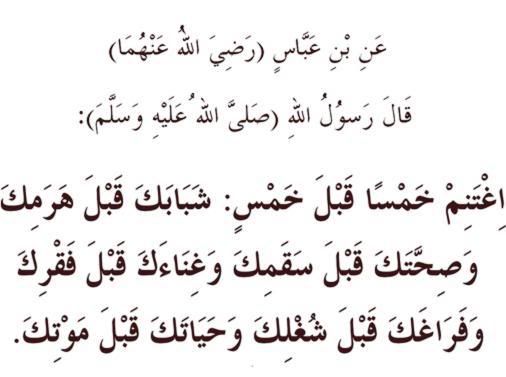 عَنِ بْنِ عَبَّاسٍ (رَضِيَ اللهُ عَنْهُمَا)
قَالَ رَسوُلُ اللهِ (صَلىَّ اللهُ عَلَيْهِ وَسَلَّمَ):
اِغْتَنِمْ خَمْسًا قَبْلَ خَمْسٍ: شَبَابَكَ قَبْلَ هَرَمِكَ
وَصِحَّتَكَ قَبْلَ سَقَمِكَ وَغِنَاءَكَ قَبْلَ فَقْرِكَ
وَفَرَاغَكَ قَبْلَ شُغْلِكَ وَحَيَاتَكَ قَبْلَ مَوْتِكَ.